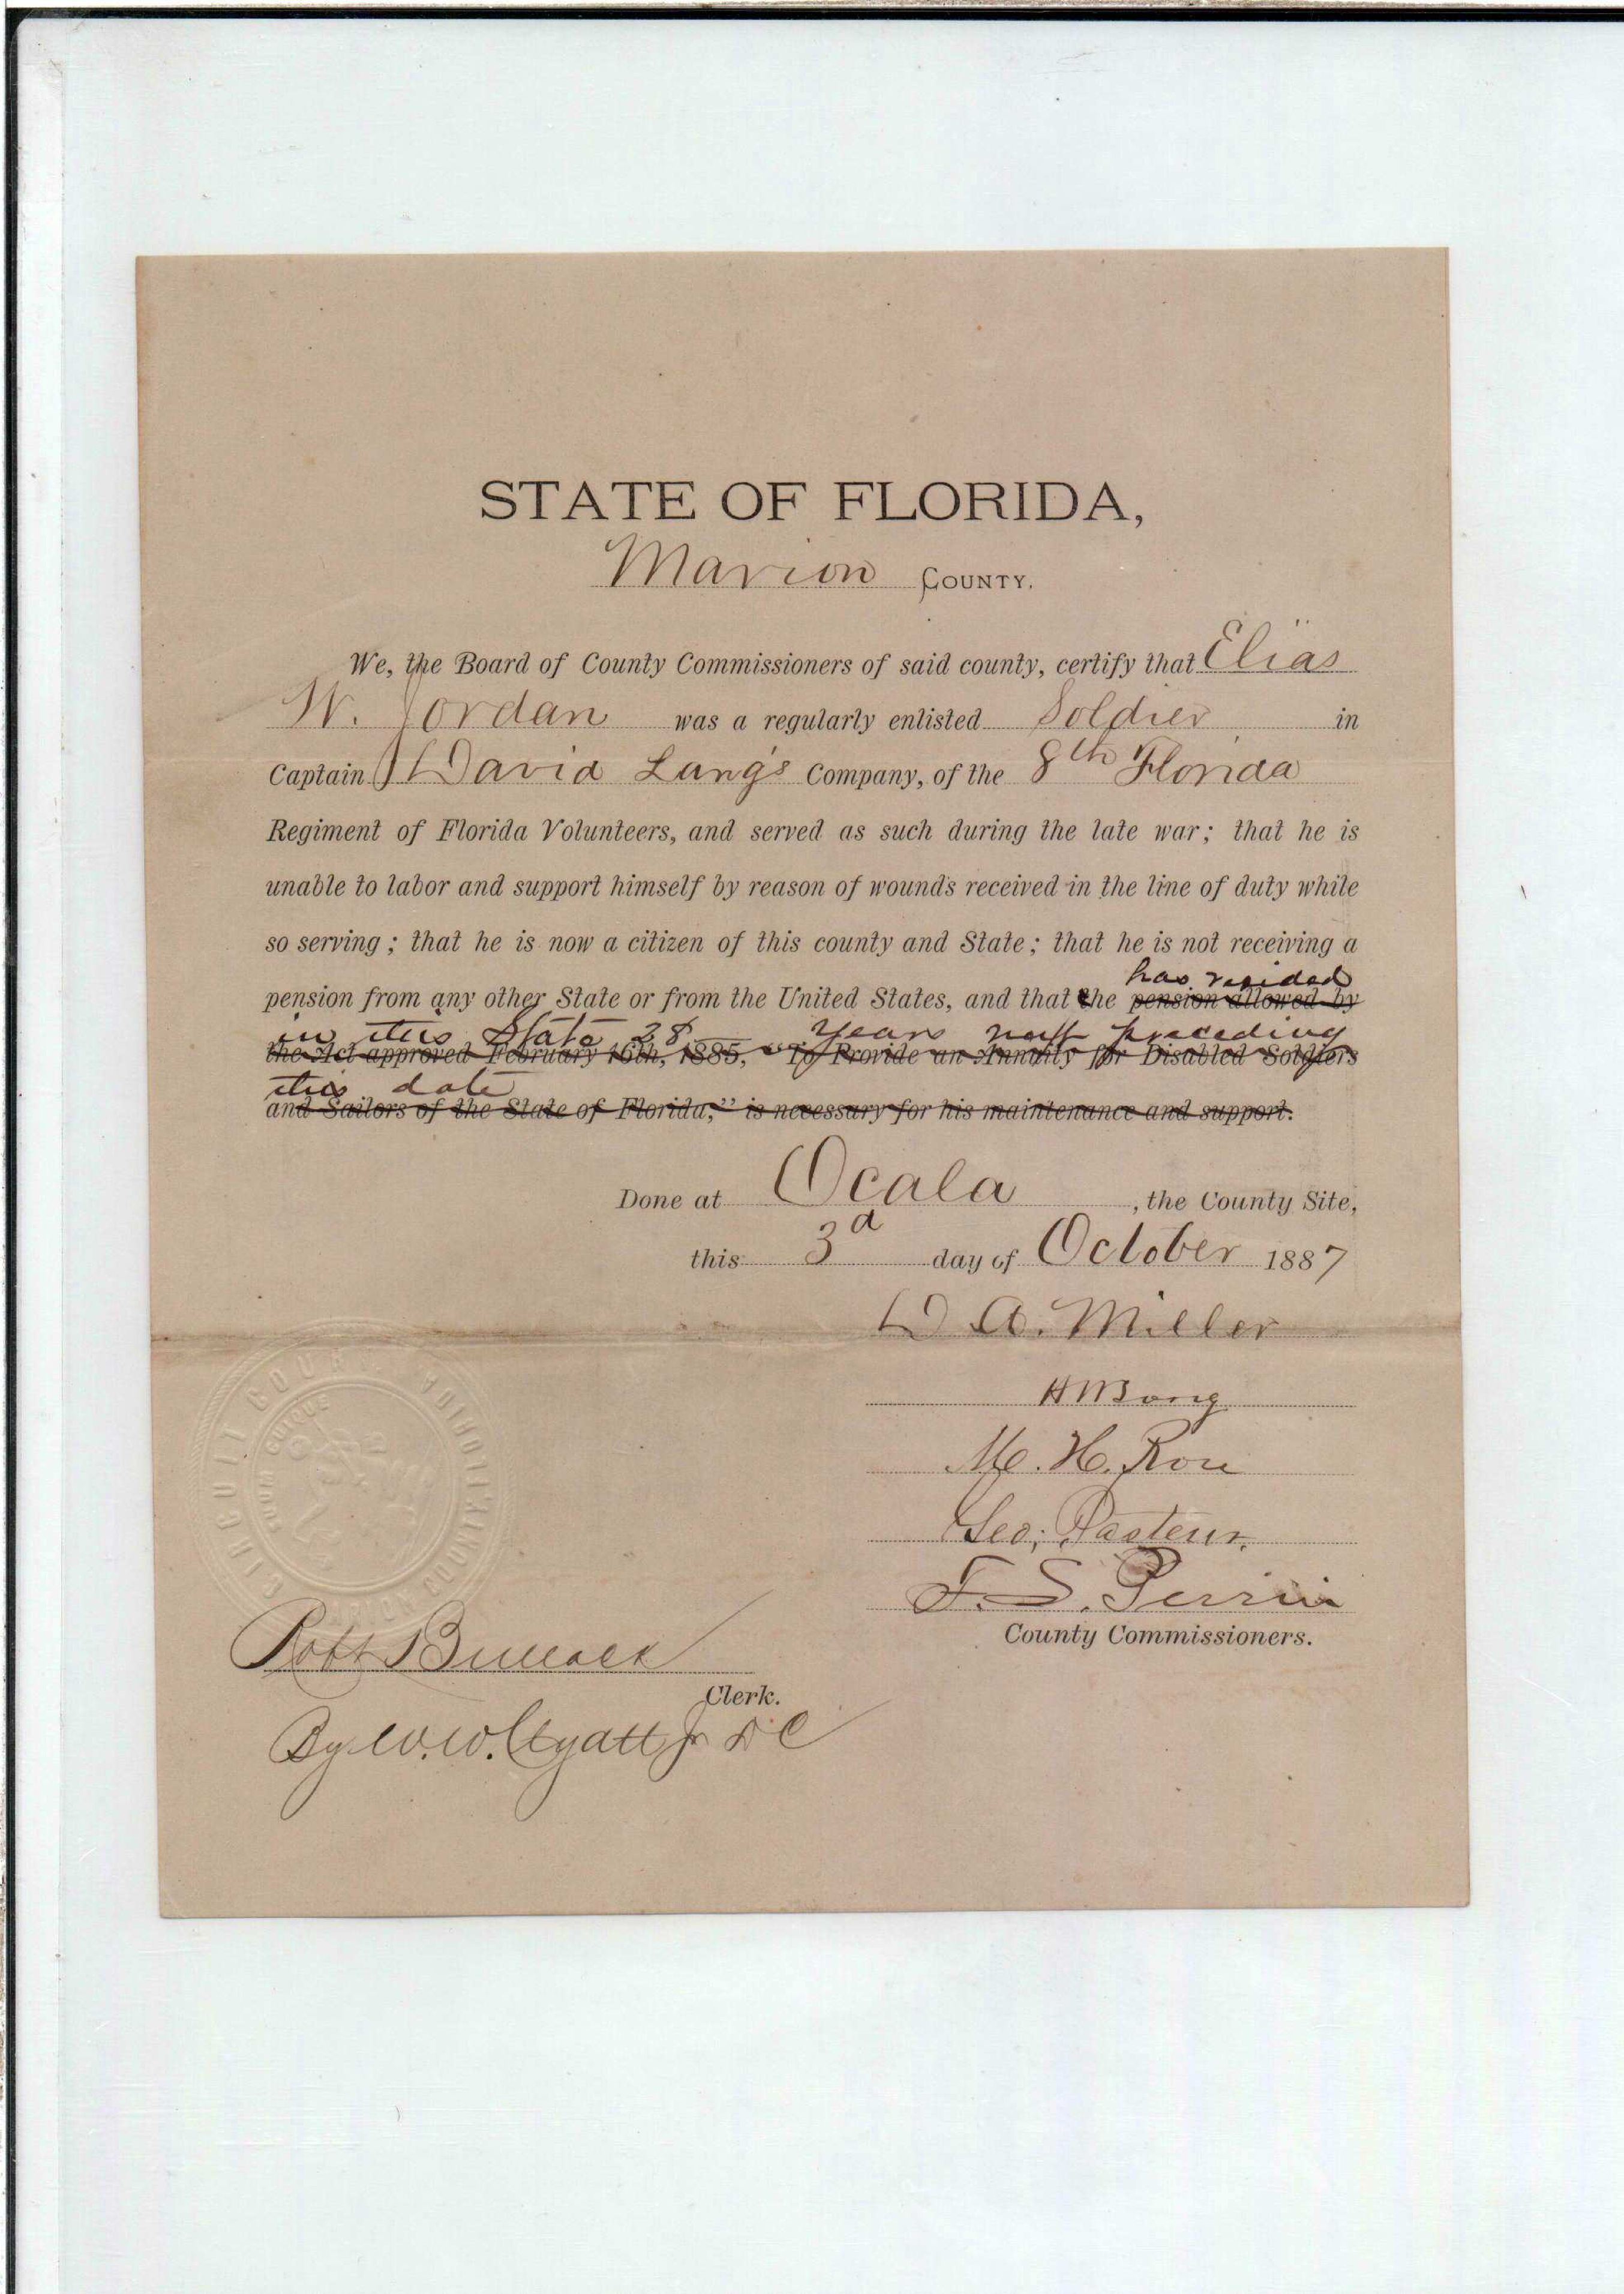 STATE OF FLORIDA,
Marion COUNTY.
We, the Board of County Commissioners of said county, certify that Elias
W. Jordan was a regularly enlisted Soldier in
Captain David Lang's Company, of the 8th Florida
Regiment of Florida Volunteers, and served as such during the late war; that he is
unable to labor and support himself by reason of wounds received in the line of duty while
so serving; that he is now a citizen of this county and State; that he is not receiving a
has resided
pension from any other State or from the United States, and that the pension allowed by
in this State 28 years next preceding
the Act approved February 16th, 1885, "To Provide an Annuity for Disabled Soldiers
this date
and Sailors of the State of Florida," is necessary for his maintenance and support.
Done at Ocala, the County Site,
this 3d day of October 1887
D A. Miller
M. H.
Geo; Pasteur.
F. S. Perrin
County Commissioners.
CIRCUIT COURT. MARION COUNTY FLORIDA
SUUM CUIQUE
Robt Bullock
Clerk.
By W. W. Clyatt Jr D C